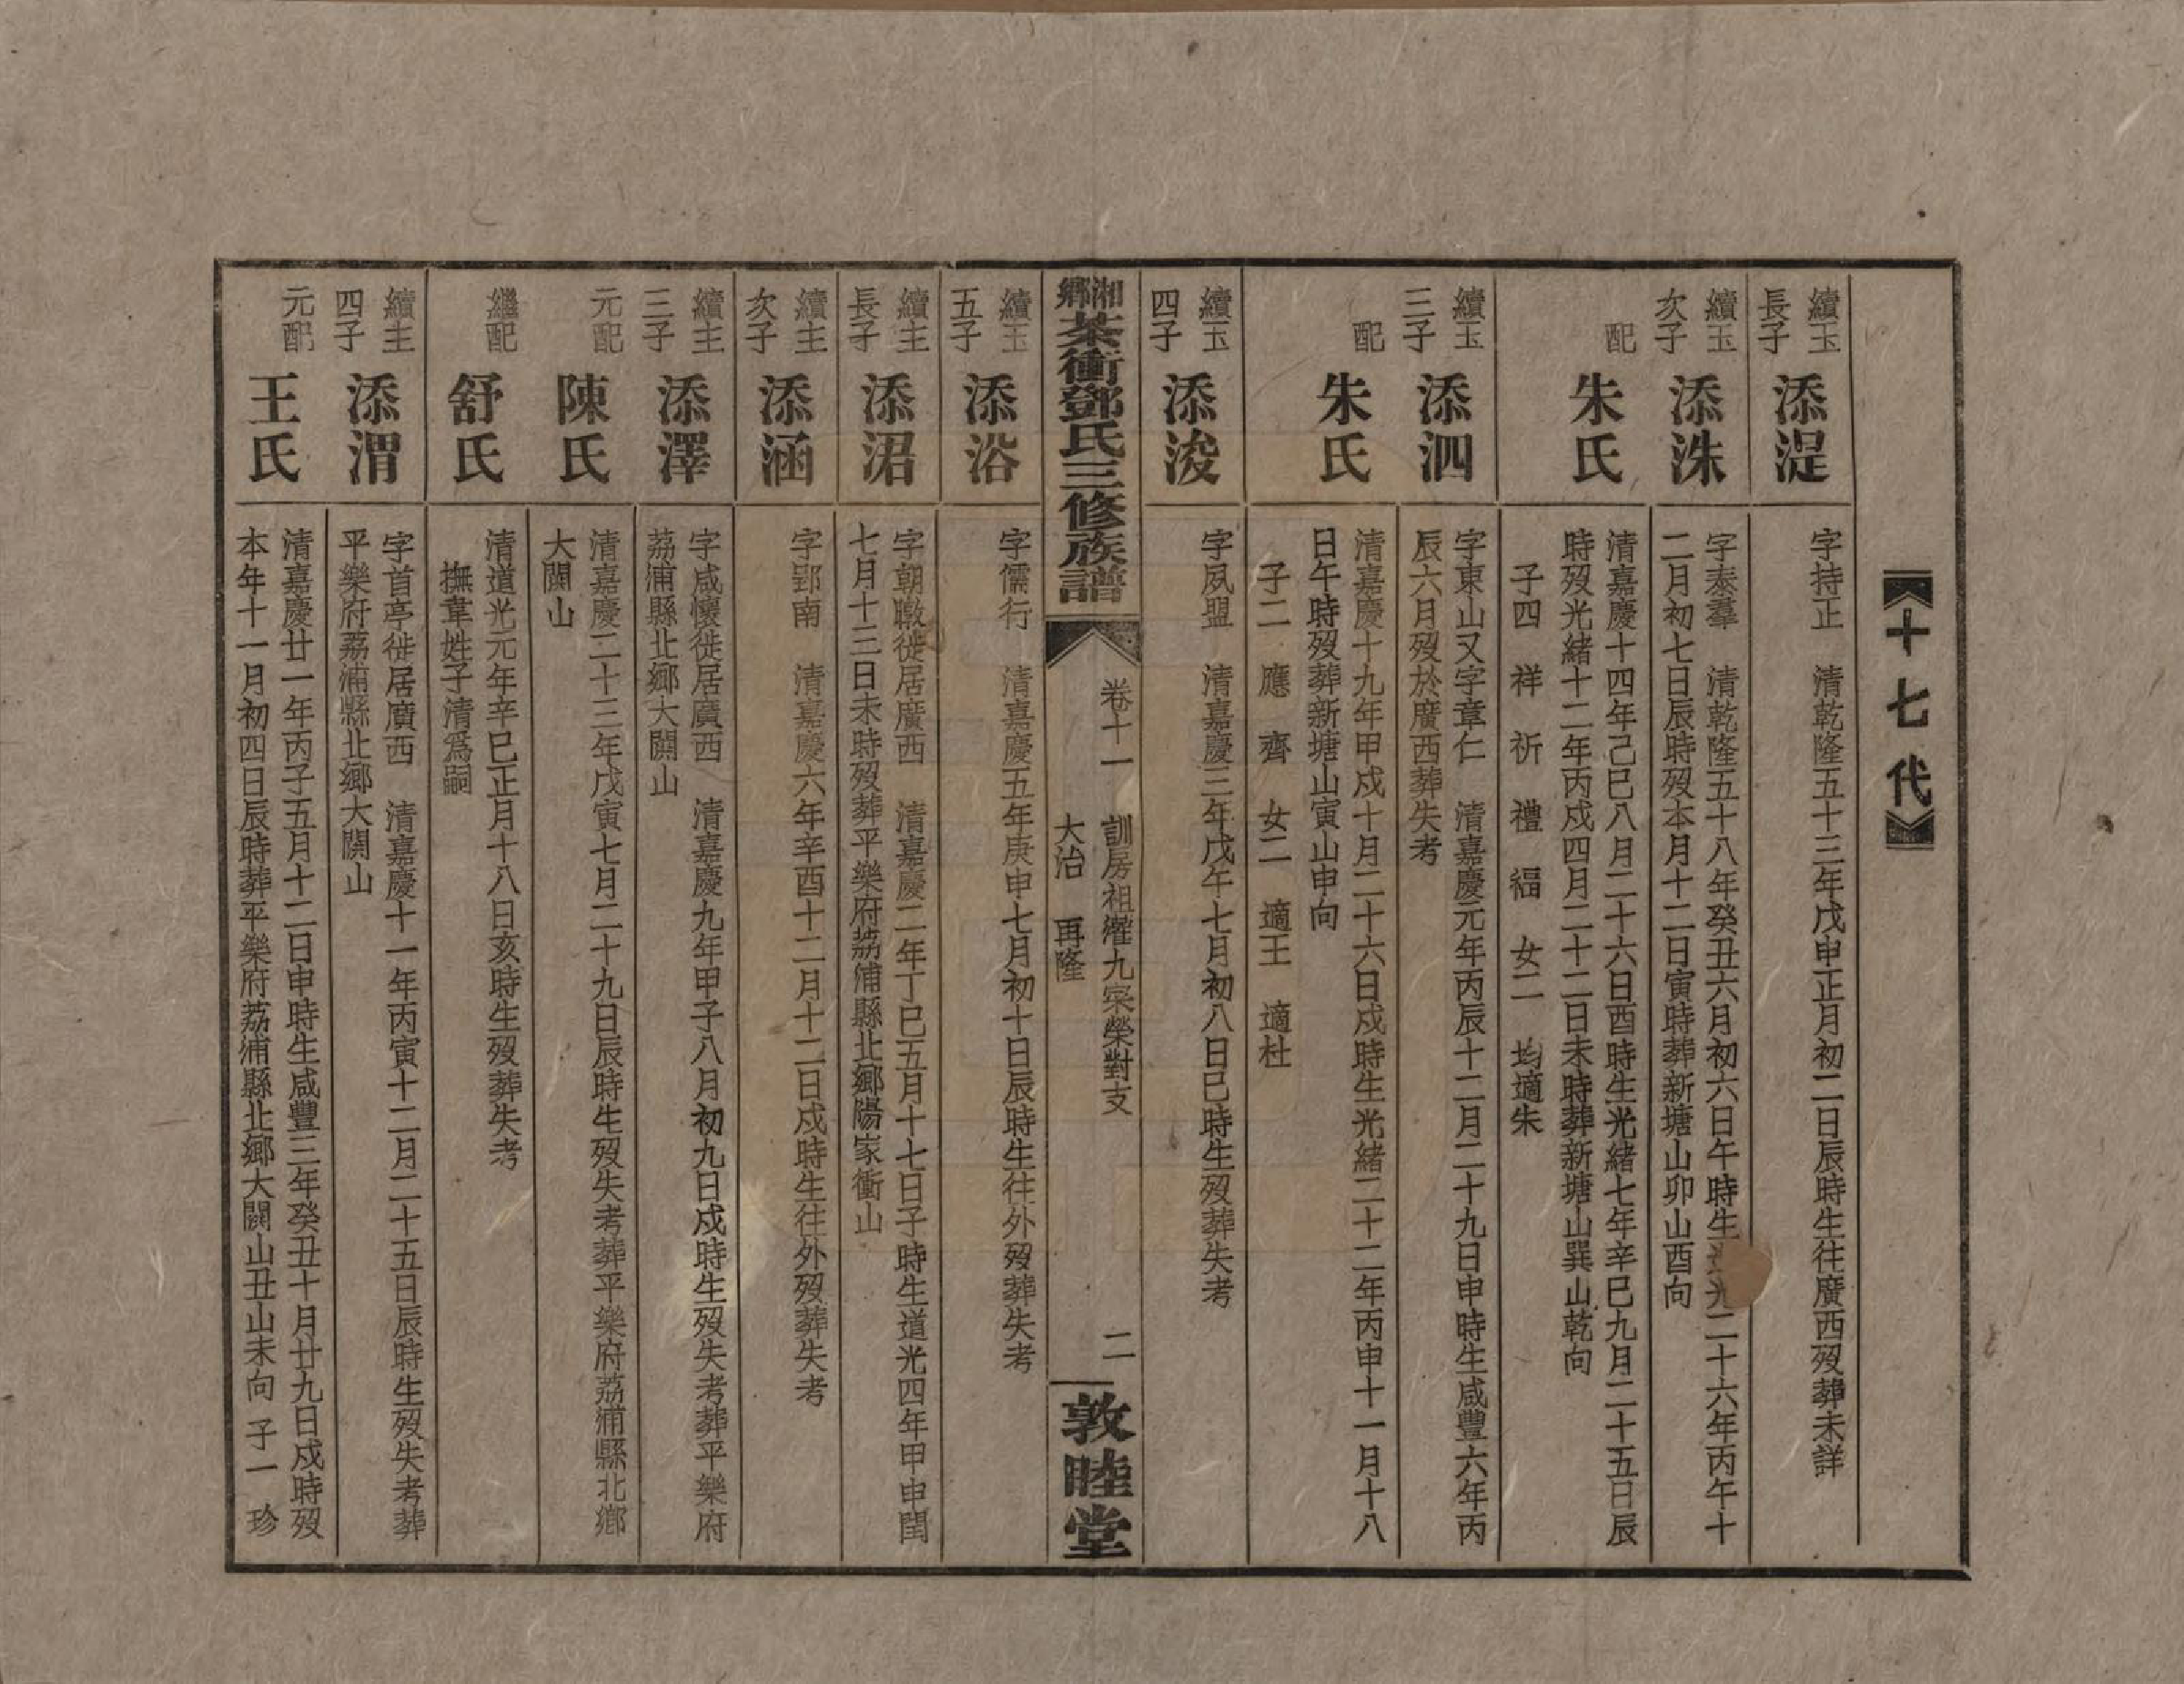 十七代
續玉長子
添湜
字持正　清乾隆五十三年戊申正月初二日辰時生往廣西歿葬未詳
續玉次子
添洙
字泰羣　清乾隆五十八年癸丑六月初六日午時生　光二十六年丙午十
二月初七日辰時歿本月十二日寅時葬新塘山卯山酉向
配
朱氏
清嘉慶十四年己巳八月二十六日酉時生光緒七年辛巳九月二十五日辰
時歿光緒十二年丙戌四月二十二日未時葬新塘山巽山乾向
子四　祥　祈　禮　福　女二　均適朱
續玉三子
添泗
字東山又字章仁　清嘉慶元年丙辰十二月二十九日申時生咸豐六年丙
辰六月歿於廣西葬失考
配
朱氏
清嘉慶十九年甲戌十月二十六日戌時生光緒二十二年丙申十一月十八
日午時歿葬新塘山寅山申向
子二　應　齊　女二　適王　適杜
續玉四子
添浚
字夙盟　清嘉慶三年戊午七月初八日巳時生歿葬失考
湘鄉茶衝鄧氏三修族譜
卷十一　訓房祖灌九宗榮對支
大治　再隆
二
敦睦堂
續玉五子
添浴
字儒行　清嘉慶五年庚申七月初十日辰時生往外歿葬失考
續主長子
添涒
字朝暾徙居廣西　清嘉慶二年丁巳五月十七日子時生道光四年甲申閏
七月十三日未時歿葬平樂府荔浦縣北鄉陽家衝山
續主次子
添涵
字郢南　清嘉慶六年辛酉十二月十二日戌時生往外歿葬失考
續主三子
添澤
字咸懷徙居廣西　清嘉慶九年甲子八月初九日戌時生歿失考葬平樂府
荔浦縣北鄉大閞山
元配
陳氏
清嘉慶二十三年戊寅七月二十九日辰時生歿失考葬平樂府荔浦縣北鄉
大閞山
繼配
舒氏
清道光元年辛巳正月十八日亥時生歿葬失考
撫韋姓子清爲嗣
續主四子
添渭
字首亭徙居廣西　清嘉慶十一年丙寅十二月二十五日辰時生歿失考葬
平樂府荔浦縣北鄉大閞山
元配
王氏
清嘉慶廿一年丙子五月十二日申時生咸豐三年癸丑十月廿九日戌時歿
本年十一月初四日辰時葬平樂府荔浦縣北鄉大閞山丑山未向　子一　珍